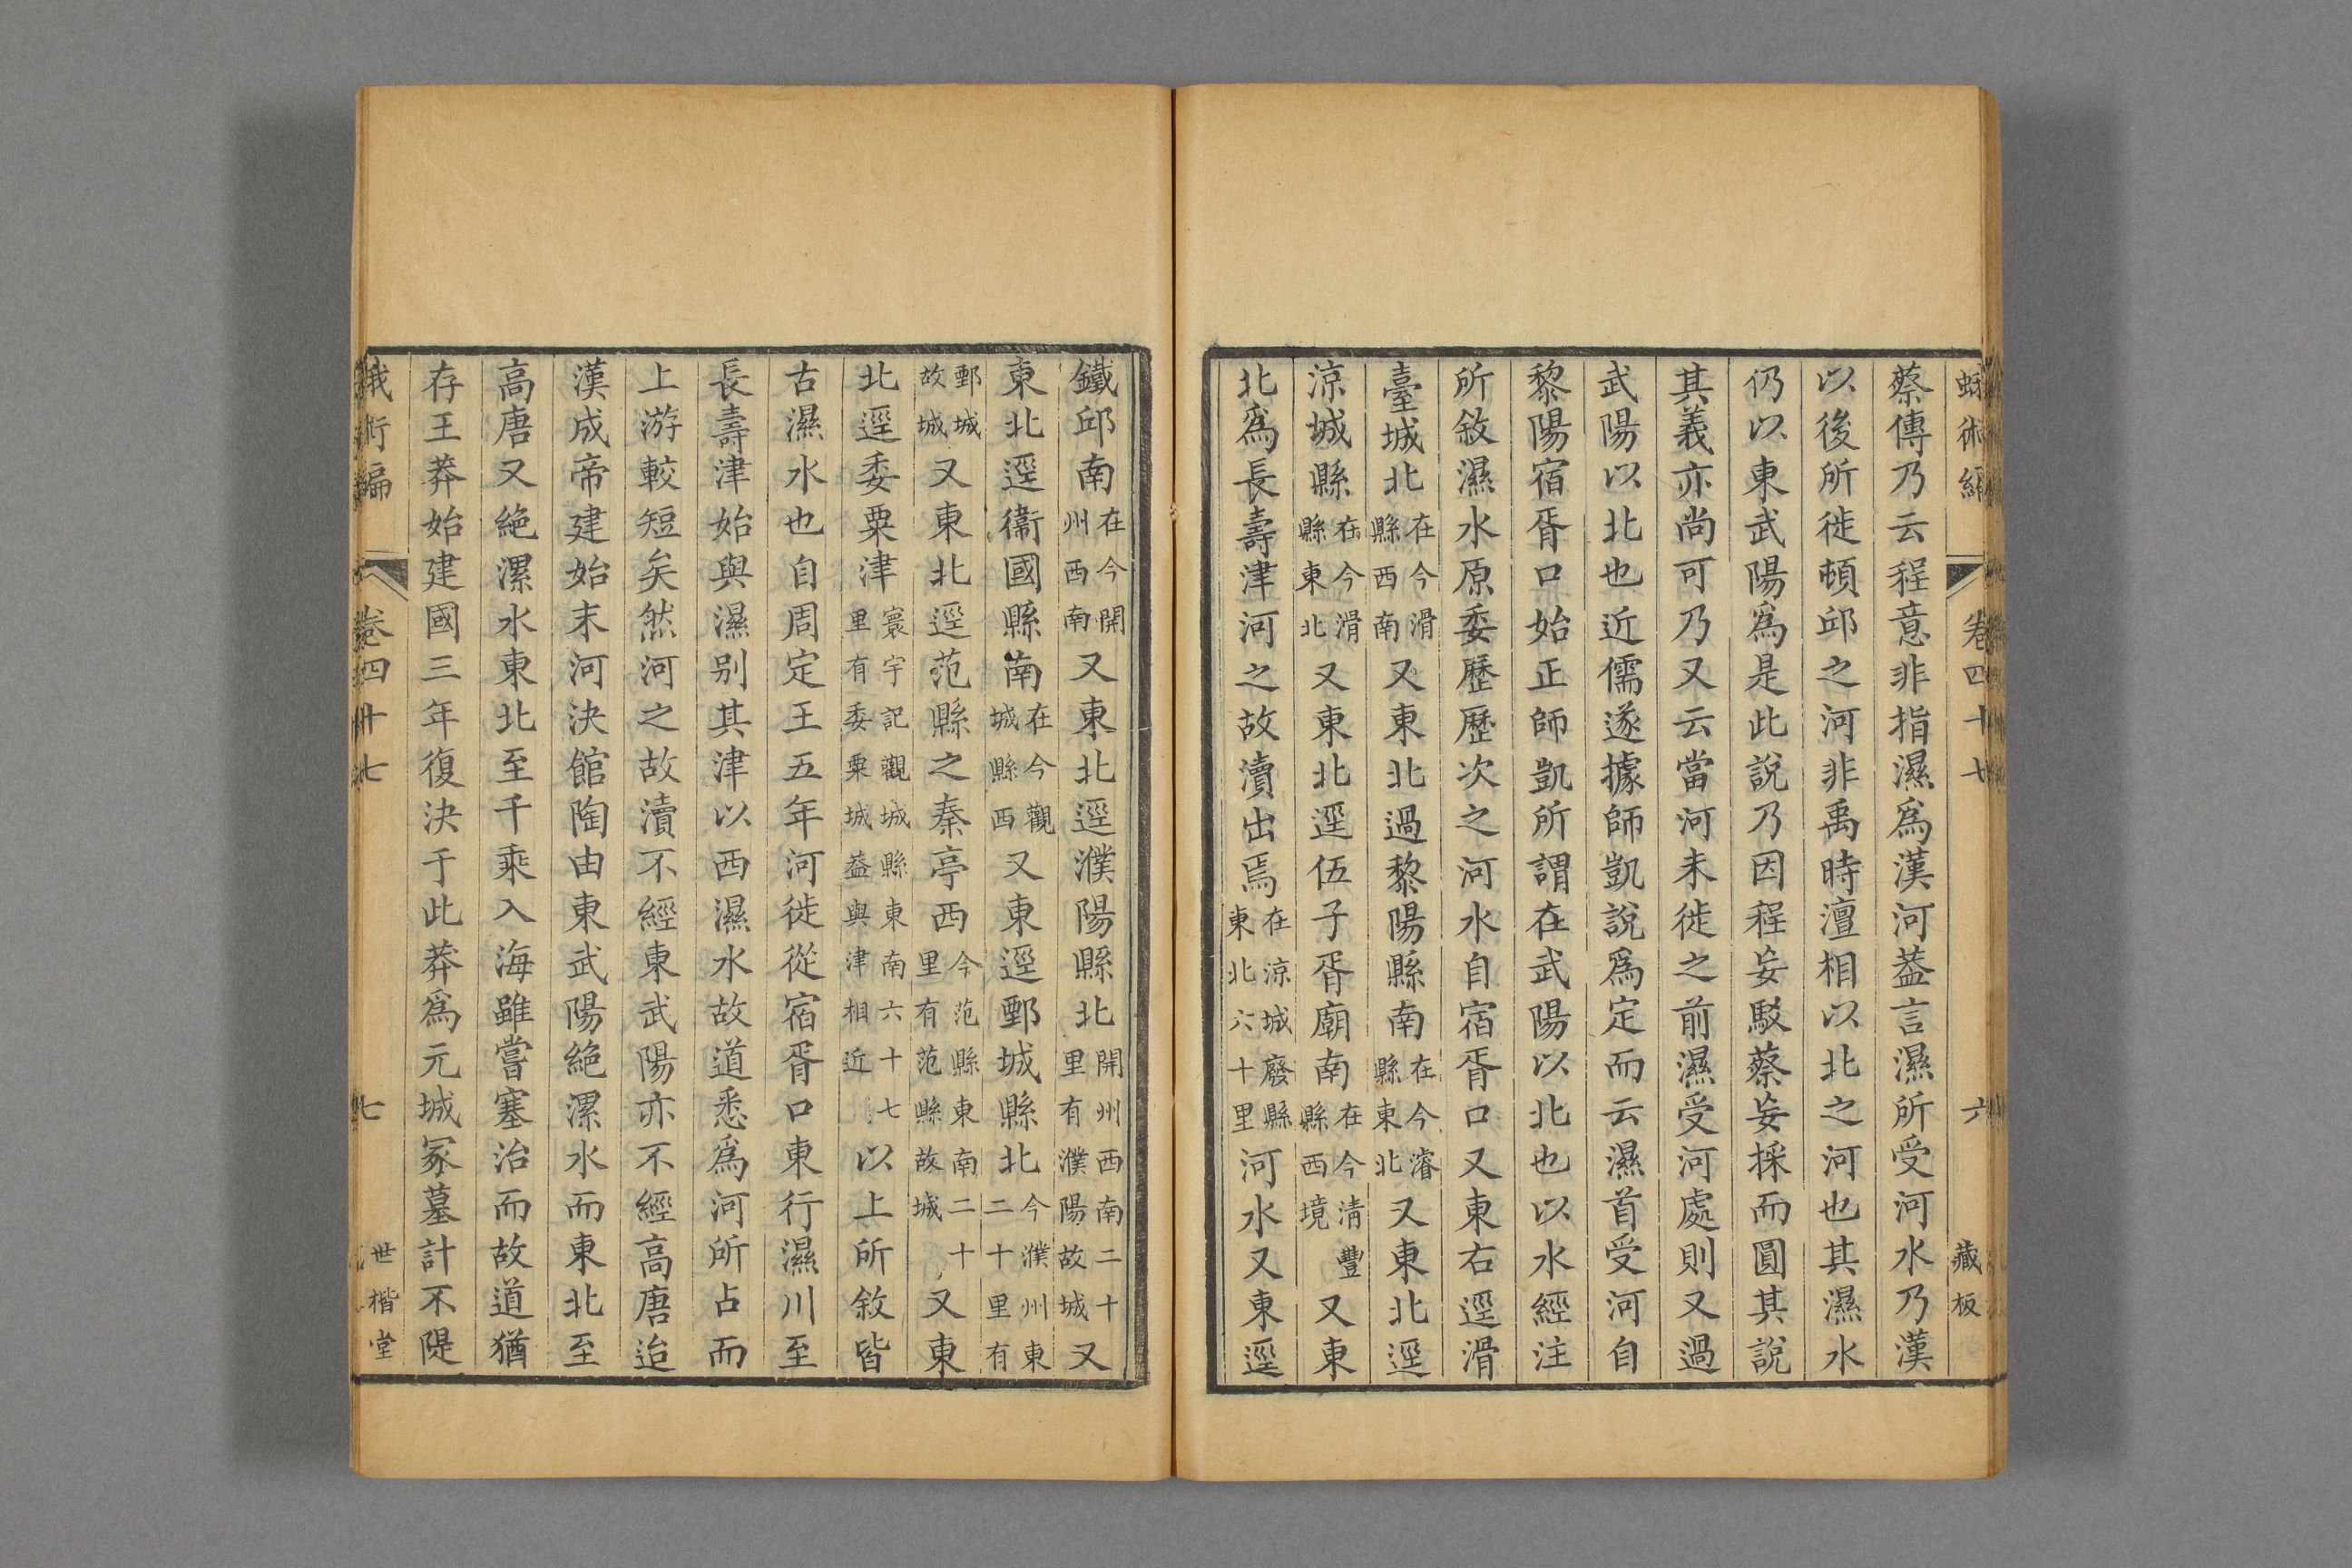 蛾術編 卷四十七 六 藏板
蔡傳乃云程意非指濕爲漢河葢言濕所受河水乃漢
以後所徙頓邱之河非禹時澶相以北之河也其濕水
仍以東武陽爲是此說乃因程妄駁蔡妄採而圓其說
其義亦尚可乃又云當河未徙之前濕受河處則又過
武陽以北也近儒遂據師凱說爲定而云濕首受河自
黎陽宿胥口始正師凱所謂在武陽以北也以水經注
所敘濕水原委歷歷次之河水自宿胥口又東右逕滑
臺城北在今滑縣西南又東北過黎陽縣南在今濬縣東北又東北逕
涼城縣在今滑縣東北又東北逕伍子胥廟南在今清豐縣西境又東
北爲長壽津河之故瀆出焉在涼城廢縣東北六十里河水又東逕
鐵邱南在今開州西南又東北逕濮陽縣北開州西南二十里有濮陽故城又
東北逕衞國縣南在今觀城縣西又東逕鄄城縣北今濮州東二十里有
鄄城故城又東北逕范縣之秦亭西今范縣東南二十里有范縣故城又東
北逕委粟津寰宇記觀城縣東南六十七里有委粟城葢與津相近以上所敘皆
古濕水也自周定王五年河徙從宿胥口東行濕川至
長壽津始與濕別其津以西濕水故道悉爲河所占而
上游較短矣然河之故瀆不經東武陽亦不經高唐迨
漢成帝建始末河決館陶由東武陽絶漯水而東北至
高唐又絶漯水東北至千乘入海雖嘗塞治而故道猶
存王莽始建國三年復決于此莽爲元城冢墓計不隄
蛾術編 卷四十七 七 世楷堂